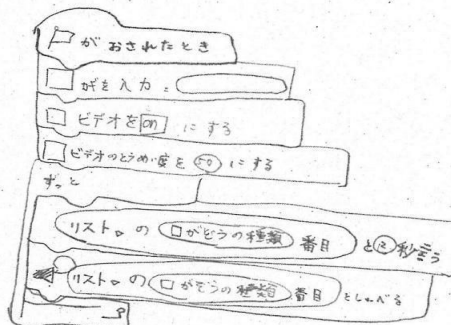 がおされたとき
がぞを入力:
ビデオを on にする
ビデオのとうめい度を 50 にする
ずっと
リスト の がぞうの種類 番目 と 2 秒言う
リスト の がぞうの種類 番目 としゃべる